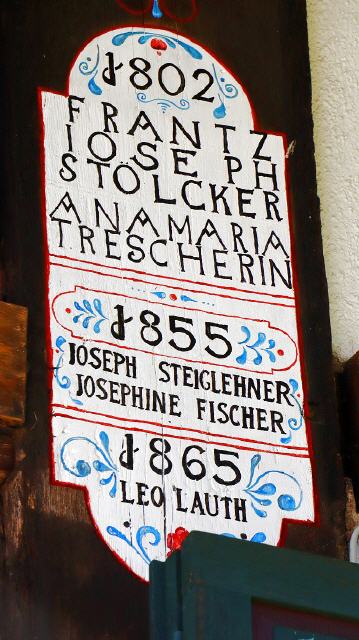 1802
FRANTZ
IOSEPH
STÖLCKER
ANAMARIA
TRESCHERIN
1855
JOSEPH STEIGLEHNER
JOSEPHINE FISCHER
1865
LEO LAUTH